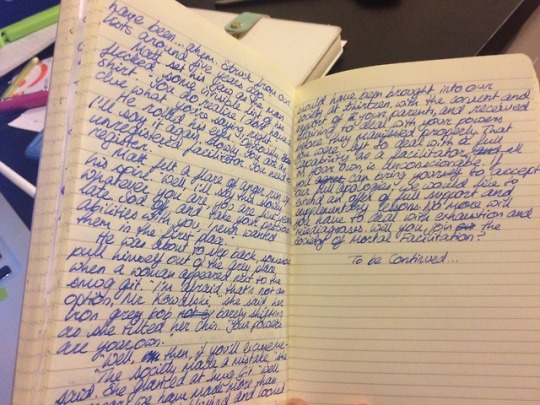 have been... ahem. Struck from our
lists around five years ago."
Matt set his gaze on the man,
flicked some invisible dust from
shirt. "You do realise I don't have
clue what you're saying, right?"
He rolled his eyes. "Typical. Fine.
I'll say it again, slowly. You are an
unregistered facilitator. You need
register."
Matt felt a flare of anger run up
his spine. "Well I'll say this slowly
whatever you are, you are five years
late. Sod off and take your
abilities with you. I never wanted
them in the first place."
He was about to step back,
pull himself out of the grey place
when a woman appeared next to the
smug git. "I'm afraid that's not an
option, Mr Kowalski," she said, her
iron grey bob barely shifting
as she tilted her chin. "Your powers
are your own."
"Well, then, if you'll excuse me-"
"The Society made a mistake," she
said. She glanced at smug git. "Well
we have made more than
and
should have been brought into our
society at thirteen, with the consent and
of your parents, and received
training to deal with your powers
before they manifested properly. That
you were left to deal with a
capability as a facilitator,
on your own, is unconscionable. If
you can bring yourself to accept
our full apologies, we would like to
extend an offer of full support and
supplemental lessons. No more will
you have to deal with exhaustion and
misdiagnoses. Will you join the
Society of Mortal Facilitation?"
To be Continued...